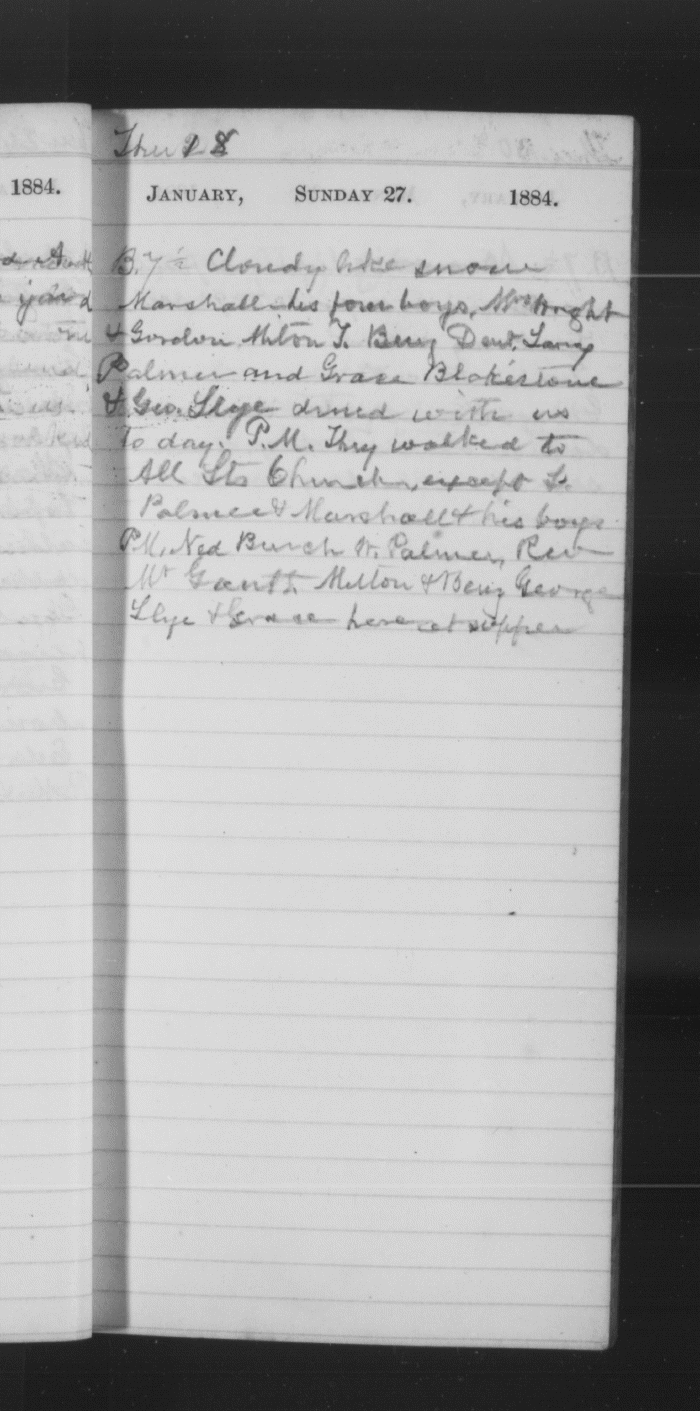 Ther 28
1884.
JANUARY, SUNDAY 27. 1884.
B. 7½ Cloudy like snow
yard Marshall his four boys, Mrs Wright
& Gordon Milton T. Benj Dent, Larry
Palmer and Grace Blakestone
& Geo. Slye dined with us
to day. P.M. They walked to
All Sts Church, except L.
Palmer & Marshall & his boys
PM, Ned Burch W. Palmer, Rev
Mr Gantt Milton & Benj George
Slye & Grace here at supper